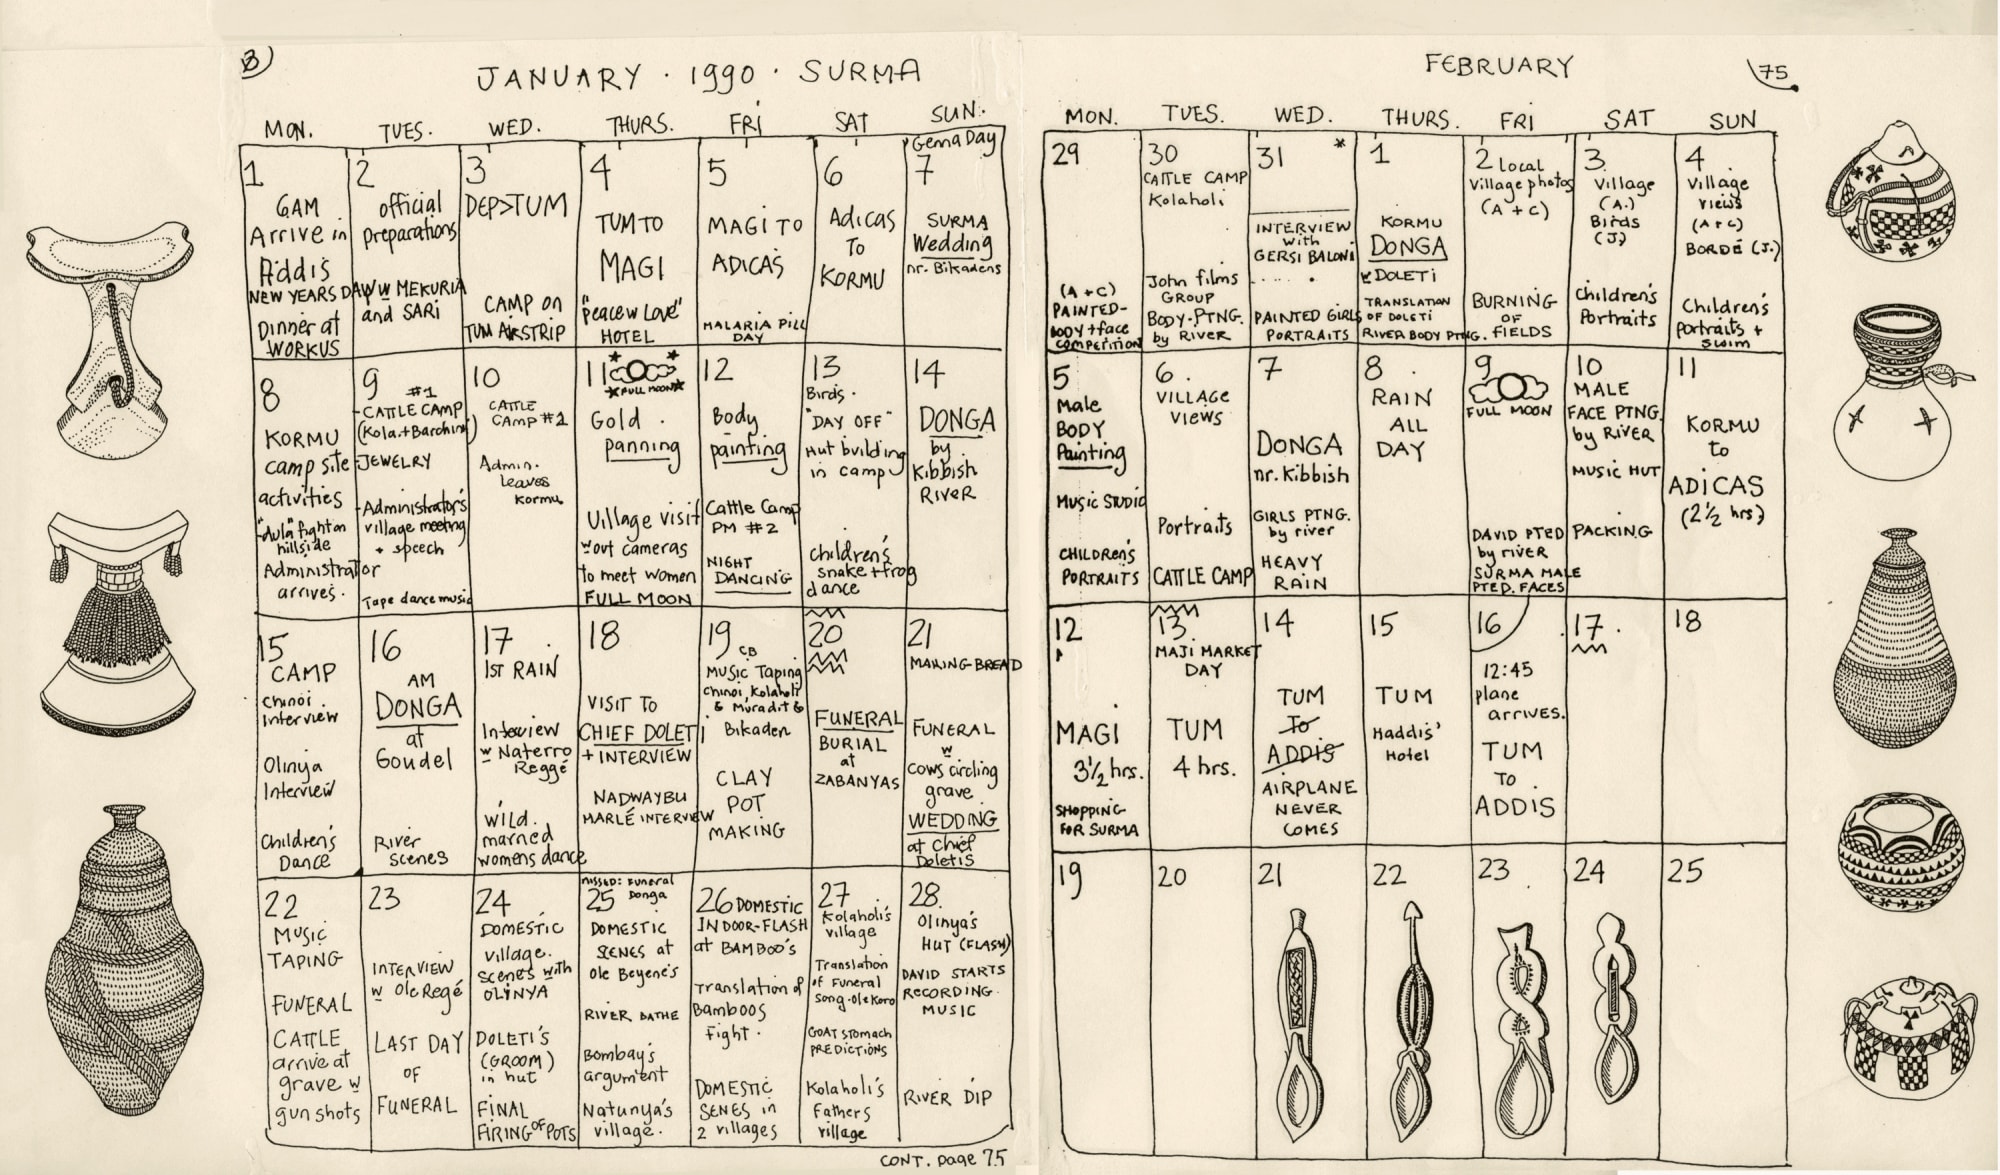 JANUARY · 1990 · SURMA
MON. TUES. WED. THURS. FRI SAT SUN.
1
6AM
Arrive in
Addis
NEW YEARS DAY
Dinner at
WORKUS
2
official
preparations
w MEKURIA
and SARI
3
DEP>TUM
CAMP ON
TUM AIRSTRIP
4
TUM TO
MAGI
"peace w Love"
HOTEL
5
MAGI TO
ADICAS
MALARIA PILL
DAY
6
Adicas
To
KORMU
Gema Day
7
SURMA
Wedding
nr. Bikadens
8
KORMU
camp site
activities
"dula" fight on
hillside
Administrator
arrives.
9
#1
-CATTLE CAMP
(Kola.+Barchini)
-JEWELRY
-Administrator's
village meeting
+ speech
Tape dance music
10
CATTLE
CAMP #2
Admin.
leaves
Kormu
11
FULL MOON
Gold
panning
Village visit
w'out cameras
to meet women
FULL MOON
12
Body
painting
Cattle Camp
PM #2
NIGHT
DANCING
13
Birds.
"DAY OFF"
Hut building
in camp
children's
snake + frog
dance
14
DONGA
by
Kibbish
RIVER
15
CAMP
Chinoi
Interview
Olinya
Interview
Children's
Dance
16
AM
DONGA
at
Goudel
River
Scenes
17
1ST RAIN
Interview
w Naterro
Reggé
wild.
married
womens dance
18
VISIT TO
CHIEF DOLETI
+ INTERVIEW
NADWAYBU
MARLÉ INTERVIEW
19
CB
Music Taping
Chinoi, Kolaholi
& Muradit &
Bikaden
CLAY
POT
MAKING
20
FUNERAL
BURIAL
at
ZABANYAS
21
MAKING BREAD
FUNERAL
w
cows circling
grave
WEDDING
at Chief
Doletis
22
MUSIC
TAPING
FUNERAL
CATTLE
arrive at
grave w
gun shots
23
INTERVIEW
w Ole Regé
LAST DAY
OF
FUNERAL
24
DOMESTIC
village.
scenes with
OLINYA
DOLETI'S
(GROOM)
in hut
FINAL
FIRING OF POTS
MISSED: Funeral
Donga
25
DOMESTIC
SCENES at
Ole Beyene's
RIVER BATHE
Bombay's
argument
Natunya's
village.
26 DOMESTIC
INDOOR-FLASH
at BAMBOO'S
Translation of
Bamboos
Fight.
DOMESTIC
SENES in
2 villages
27
Kolaholi's
village
Translation
of Funeral
Song-Ole Koro
GOAT stomach
PREDICTIONS
Kolaholi's
Fathers
village
28.
Olinya's
HUT (FLASH)
DAVID STARTS
RECORDING
MUSIC
RIVER DIP
CONT. page 75
FEBRUARY
75
MON. TUES. WED. THURS. FRI SAT SUN
29
(A + C)
PAINTED-
BODY + face
COMPETITION
30
CATTLE CAMP
Kolaholi
John films
GROUP
BODY-PTNG.
by RIVER
31 *
INTERVIEW
with
GERSI BALONI
PAINTED GIRLS
PORTRAITS
1
KORMU
DONGA
w DOLETI
TRANSLATION
OF DOLETI
RIVER BODY PTNG.
2 local
village photos
(A + C)
BURNING
OF
FIELDS
3.
Village
(A.)
Birds
(J)
Children's
Portraits
4
Village
Views
(A + C)
BORDÉ (J.)
Children's
portraits +
swim
5
Male
BODY
Painting
MUSIC STUDIO
CHILDREN'S
PORTRAITS
6
VILLAGE
VIEWS
Portraits
CATTLE CAMP
7
DONGA
nr. Kibbish
GIRLS PTNG.
by river
HEAVY
RAIN
8
RAIN
ALL
DAY
9
FULL MOON
DAVID PTED
by river
SURMA MALE
PTED. FACES
10
MALE
FACE PTNG.
by RIVER
MUSIC HUT
PACKING
11
KORMU
to
ADICAS
(2½ hrs)
12
MAGI
3½ hrs.
SHOPPING
FOR SURMA
13.
MAJI MARKET
DAY
TUM
4 hrs.
14
TUM
To
ADDIS
AIRPLANE
NEVER
COMES
15
TUM
Haddis'
Hotel
16
12:45
plane
arrives.
TUM
TO
ADDIS
17
18
19
20
21
22
23
24
25